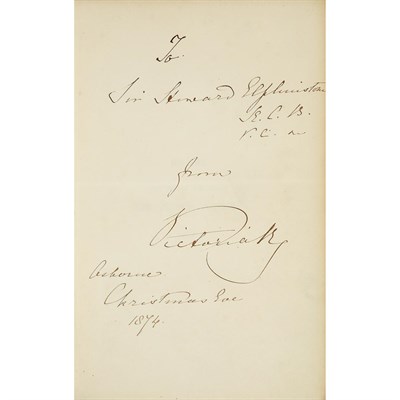 To.
Sir Howard Elphinstone
K. C. B.
V. C. &c
from
Victoria R
Osborne
Christmas Eve
1874.